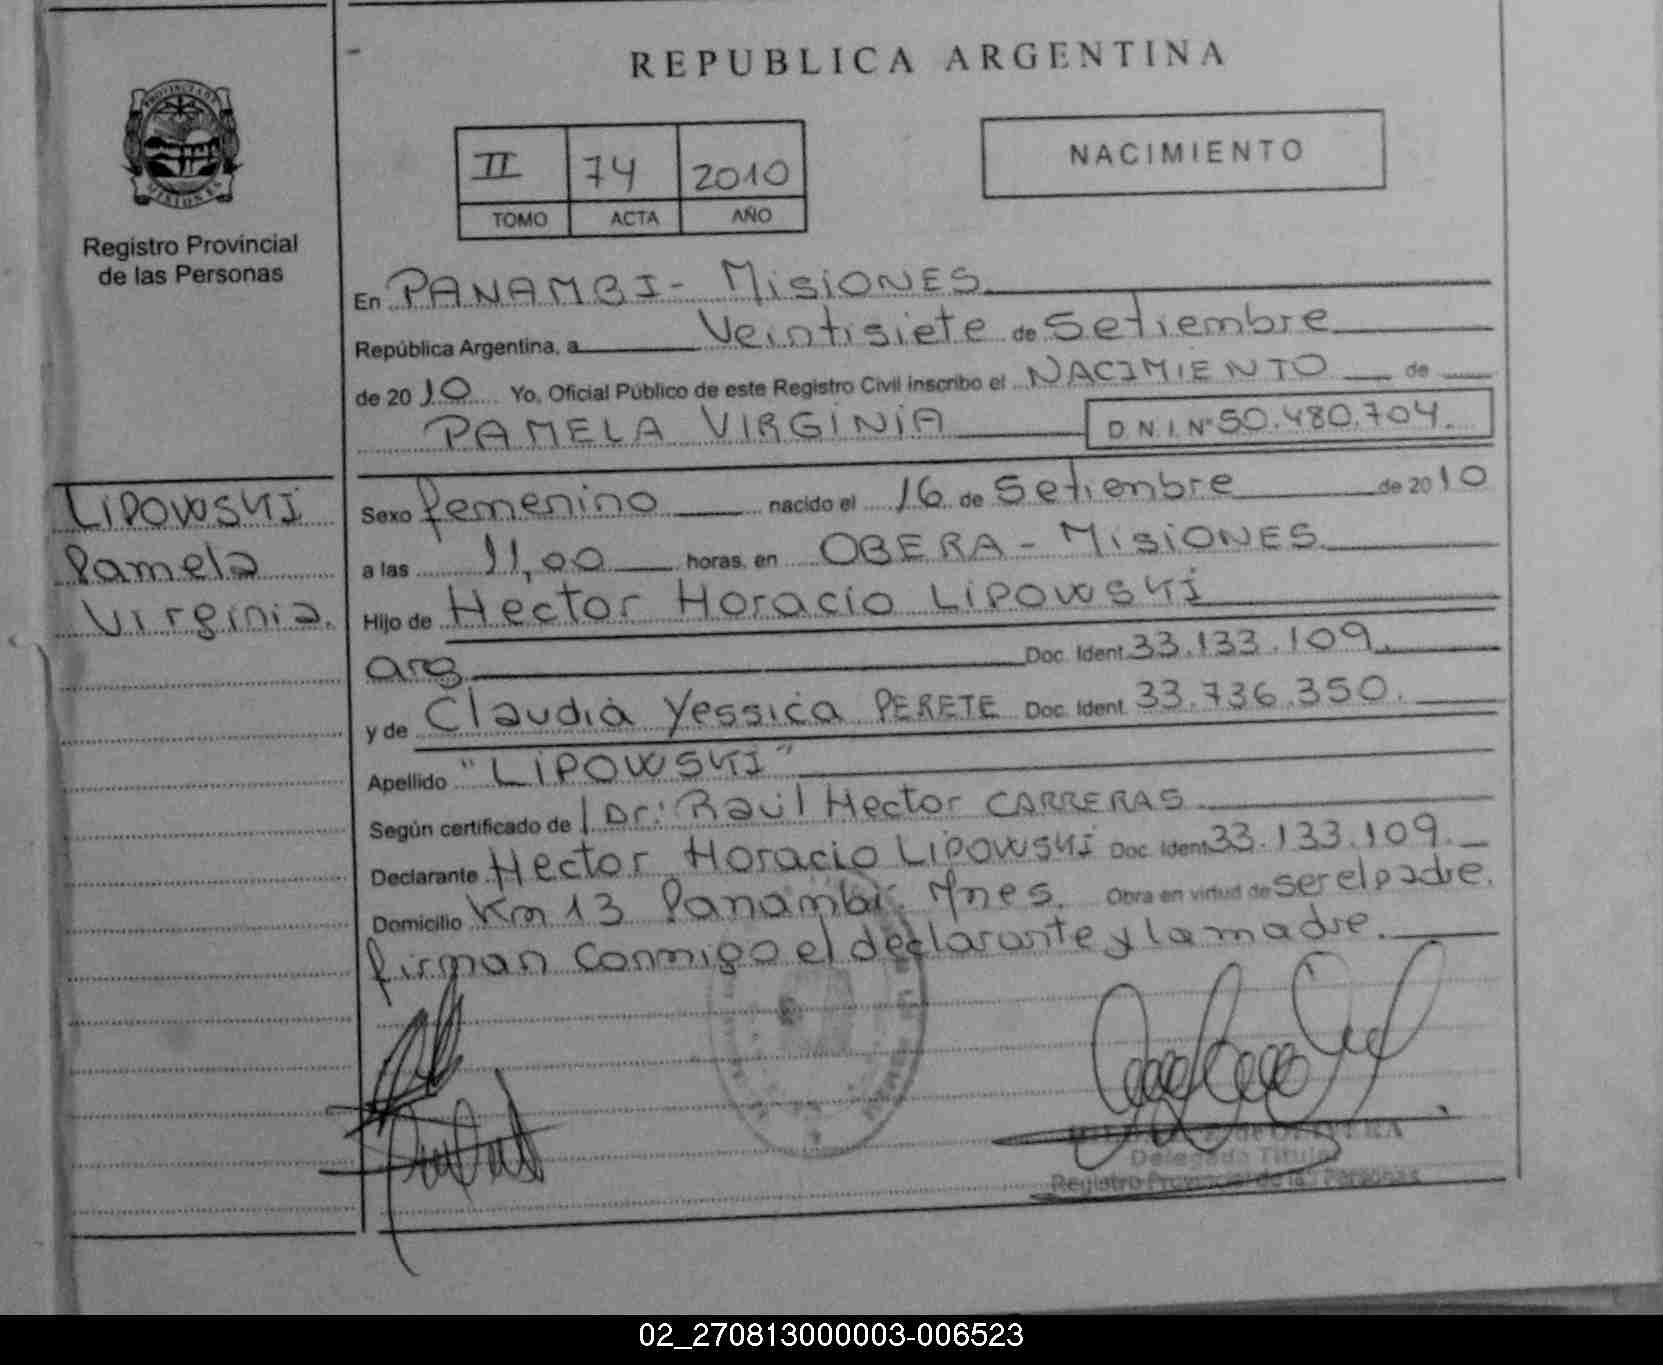 REPUBLICA ARGENTINA
PROVINCIA DE
MISIONES
Registro Provincial
de las Personas
II 74 2010
TOMO ACTA AÑO
NACIMIENTO
En PANAMBI - MISIONES
República Argentina, a Veintisiete de Setiembre
de 2010 Yo, Oficial Público de este Registro Civil inscribo el NACIMIENTO de
PAMELA VIRGINIA D.N.I. Nº 50.480.704.
LIPOWSKI
Pamela
Virginia.
Sexo femenino nacido el 16 de Setiembre de 2010
a las 11,00 horas, en OBERA - MISIONES
Hijo de Hector Horacio LIPOWSKI
arg Doc. Ident. 33.133.109.
y de Claudia Yessica PERETE Doc. Ident. 33.736.350.
Apellido "LIPOWSKI"
Según certificado de Dr: Raúl Hector CARRERAS
Declarante Hector Horacio LIPOWSKI Doc. Ident. 33.133.109.
Domicilio Km 13 Panambi. Mnes. Obra en virtud de ser el padre.
firman conmigo el declarante y la madre.
de OLIVERA
Delegada Titular
Registro Provincial de las Personas
02_270813000003-006523